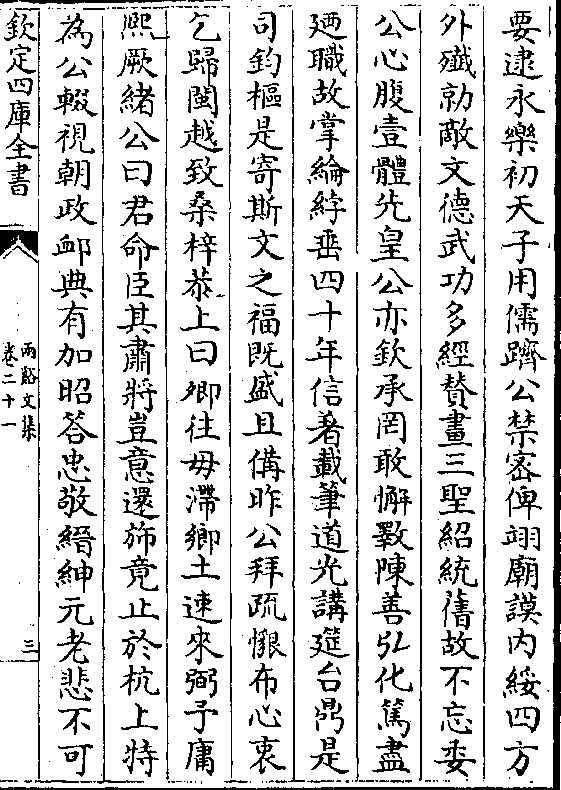 要逮永樂初天子用儒躋公禁宻俾翊廟謨内綏四方
外殱勍敵文德武功多經賛畫三聖紹統舊故不忘委
公心腹壹體先皇公亦欽承罔敢懈斁陳善弘化篤盡
廼職故掌綸綍垂四十年信著載筆道光講筵台鼎是
司鈞樞是寄斯文之福既盛且備昨公拜疏懇布心衷
乞歸閩越致桑梓恭上曰卿往毋滯鄉土速來弼予庸
熙厥緒公曰君命臣其肅將豈意還斾竟止於杭上特
為公輟視朝政䘏典有加昭答忠敬縉紳元老悲不可
欽定四庫全書
兩谿文集
卷二十一
三